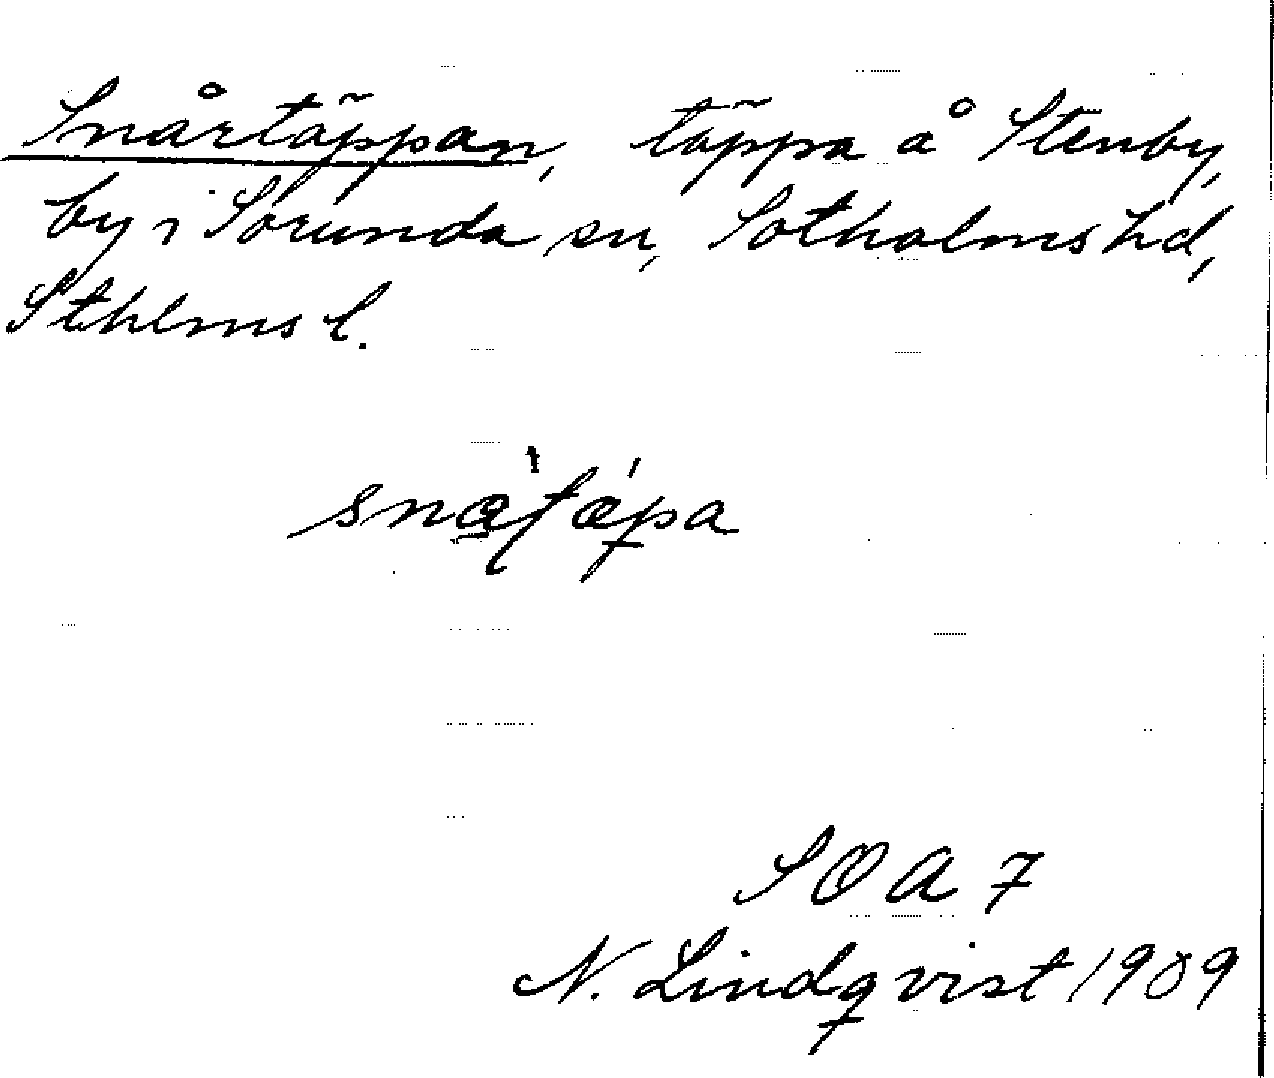 Snårtäppan, täppa å Stenby,
by i Sorunda sn, Sotholms hd,
Sthlms l.
SOA 7
N. Lindqvist 1909